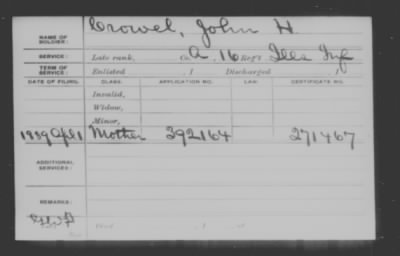 NAME OF SOLDIER: Crowel, John H
SERVICE: Late rank, Co. A, 16 Reg't Ills Inf
TERM OF SERVICE: Enlisted , 1 Discharged
DATE OF FILING. CLASS. APPLICATION NO. LAW. CERTIFICATE NO.
Invalid,
Widow,
Minor,
Mother 392164 271467
ADDITIONAL SERVICES:
REMARKS: